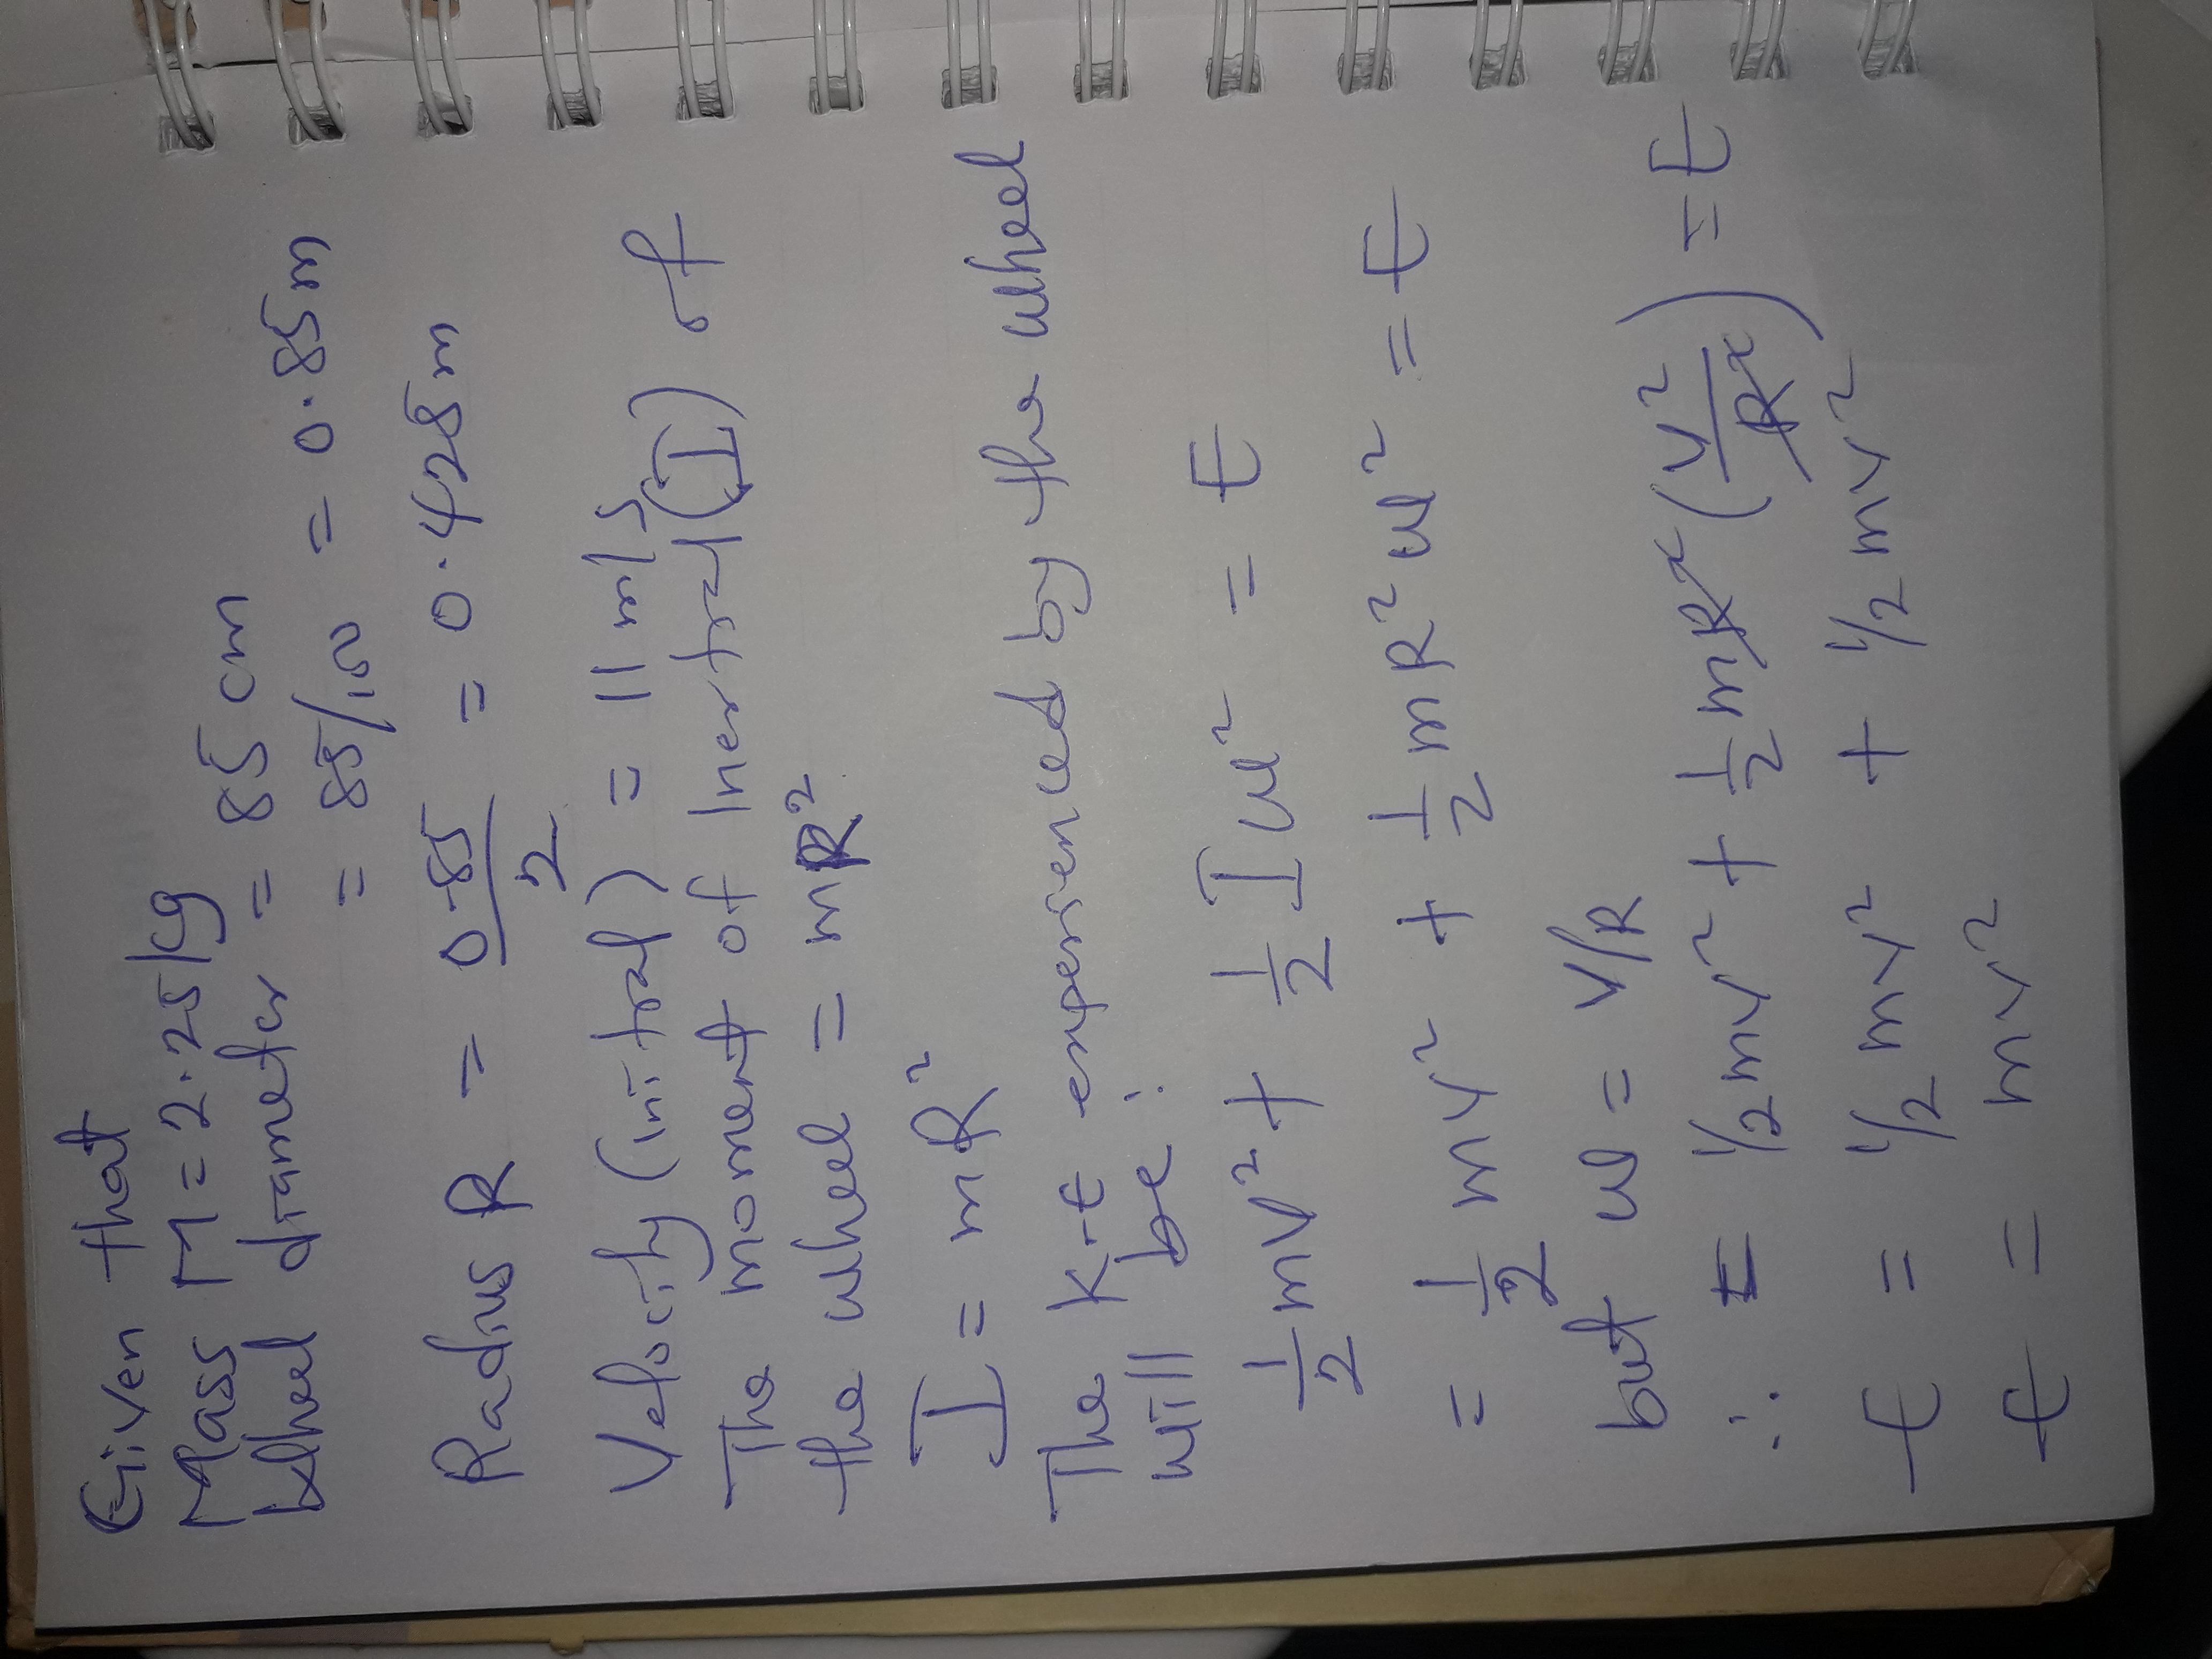 Given that
Mass M = 2.25kg
Wheel diameter = 85 cm
= 85/100 = 0.85m
Radius R = 0.85/2 = 0.425m
Velocity (initial) = 11 m/s
The moment of Inertial (I) of
the wheel = mR²
I = mR²
The K-E experienced by the wheel
will be:
1/2 mv² + 1/2 Iω² = E
= 1/2 mv² + 1/2 mR²ω² = E
but ω = V/R
∴ E = 1/2 mv² + 1/2 mR² (V²/R²) = E
E = 1/2 mv² + 1/2 mv²
E = mv²